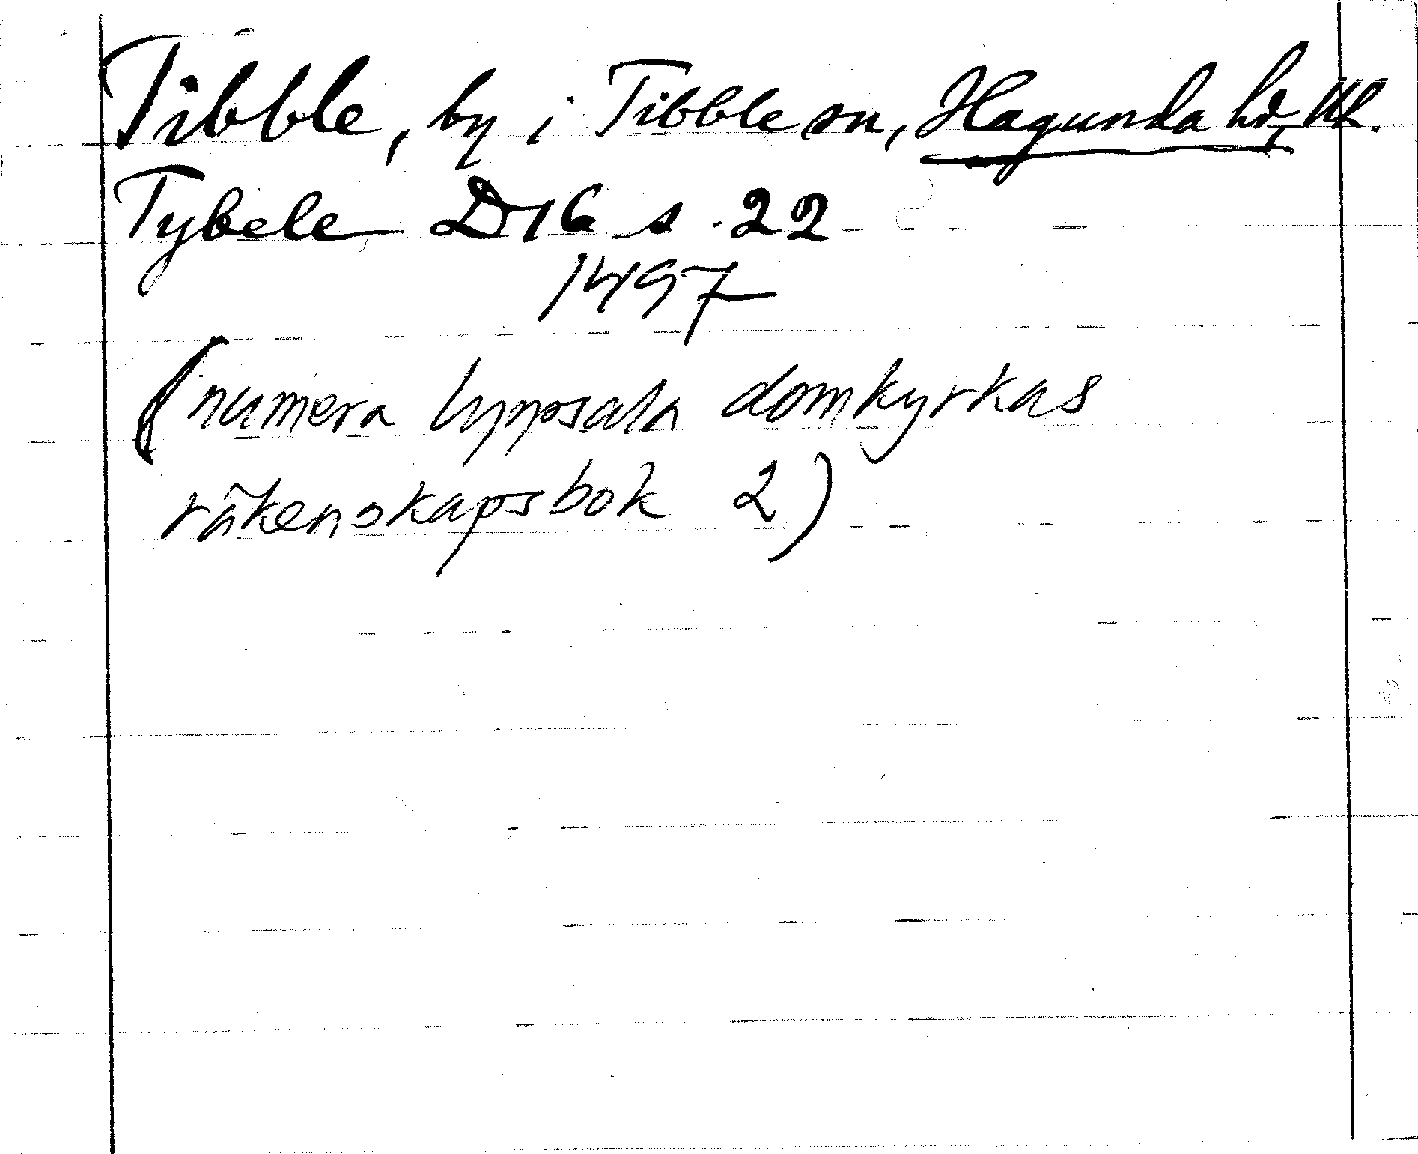 Tibble, by i Tibble sn, Hagunda hd, Upl.
Tybele D16 s. 22
1497
(numera Uppsala domkyrkas
räkenskapsbok 2)